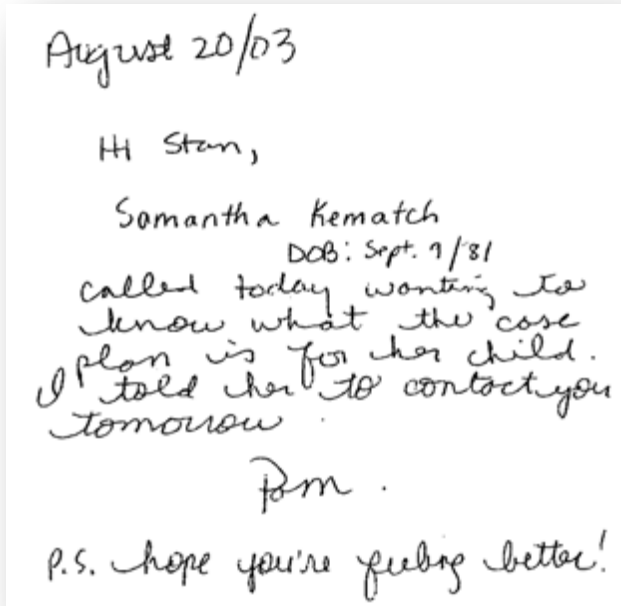 August 20/03
Hi Stan,
Samantha Kematch
DOB: Sept. 9/81
called today wanting to
know what the case
plan is for her child.
I told her to contact you
tomorrow.
Pam.
P.S. hope you're feeling better!